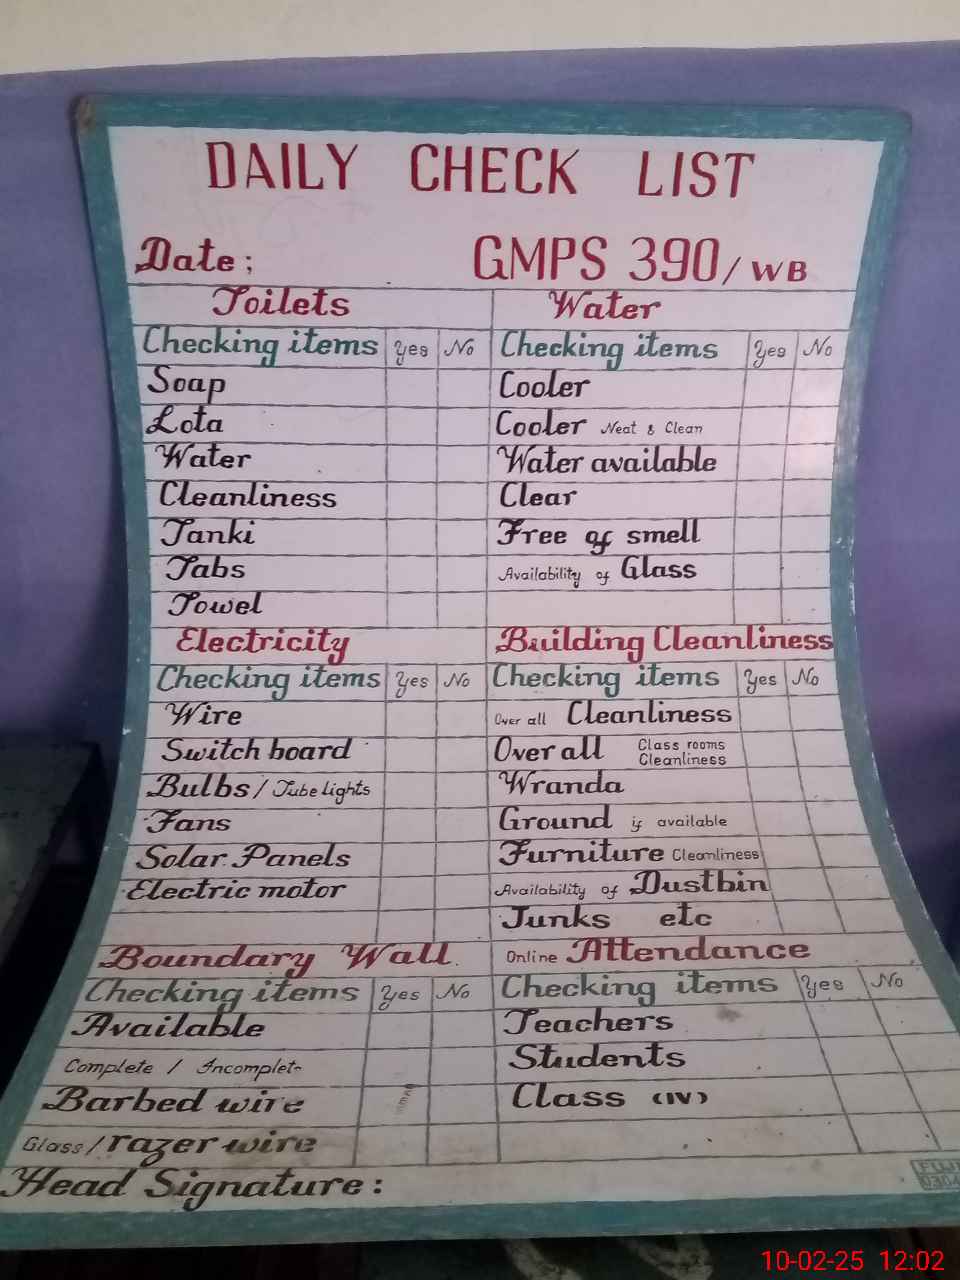 DAILY CHECK LIST
Date ; GMPS 390/WB
Toilets
Checking items Yes No
Soap
Lota
Water
Cleanliness
Tanki
Tabs
Towel
Water
Checking items Yes No
Cooler
Cooler Neat & Clean
Water available
Clear
Free of smell
Availability of Glass
Electricity
Checking items Yes No
Wire
Switch board
Bulbs / Tube lights
Fans
Solar Panels
Electric motor
Building Cleanliness
Checking items Yes No
Over all Cleanliness
Over all Class rooms
Cleanliness
Wranda
Ground if available
Furniture Cleanliness
Availability of Dustbin
Junks etc
Boundary Wall
Checking items Yes No
Available
Complete / Incomplet
Barbed wire
Glass / razer wire
Online Attendance
Checking items Yes No
Teachers
Students
Class (IV)
Head Signature :
10-02-25 12:02